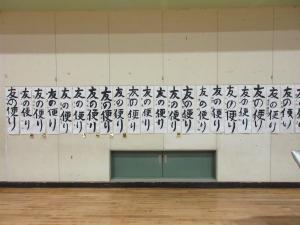 友の便り
友の便り
友の便り
友の便り
友の便り
友の便り
友の便り
友の便り
友の便り
友の便り
友の便り
友の便り
友の便り
友の便り
友の便り
友の便り
友の便り
友の便り
友の便り
友の便り
友の便り
友の便り